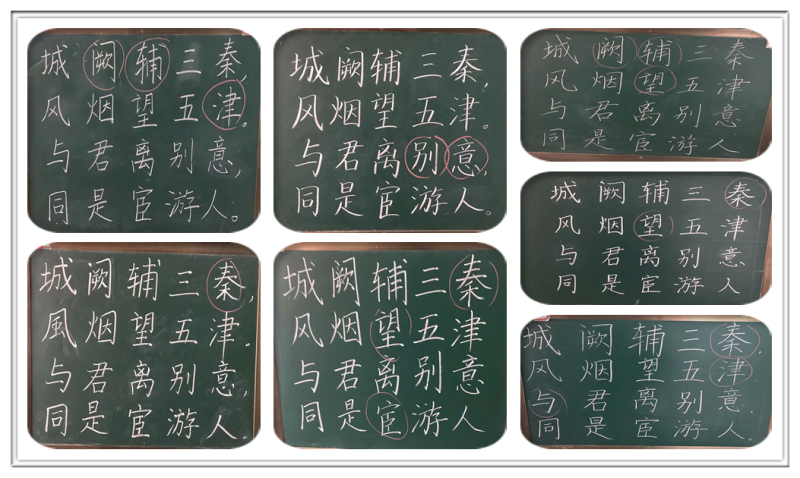 城阙辅三秦,
风烟望五津。
与君离别意,
同是宦游人。
城阙辅三秦,
风烟望五津。
与君离别意
同是宦游人。
城阙辅三秦
风烟望五津
与君离别意
同是宦游人
城阙辅三秦
风烟望五津
与君离别意
同是宦游人
城阙辅三秦,
風烟望五津.
与君离别意,
同是宦游人。
城阙辅三秦
风烟望五津
与君离别意
同是宦游人
城阙辅三秦.
风烟望五津.
与君离别意.
同是宦游人。